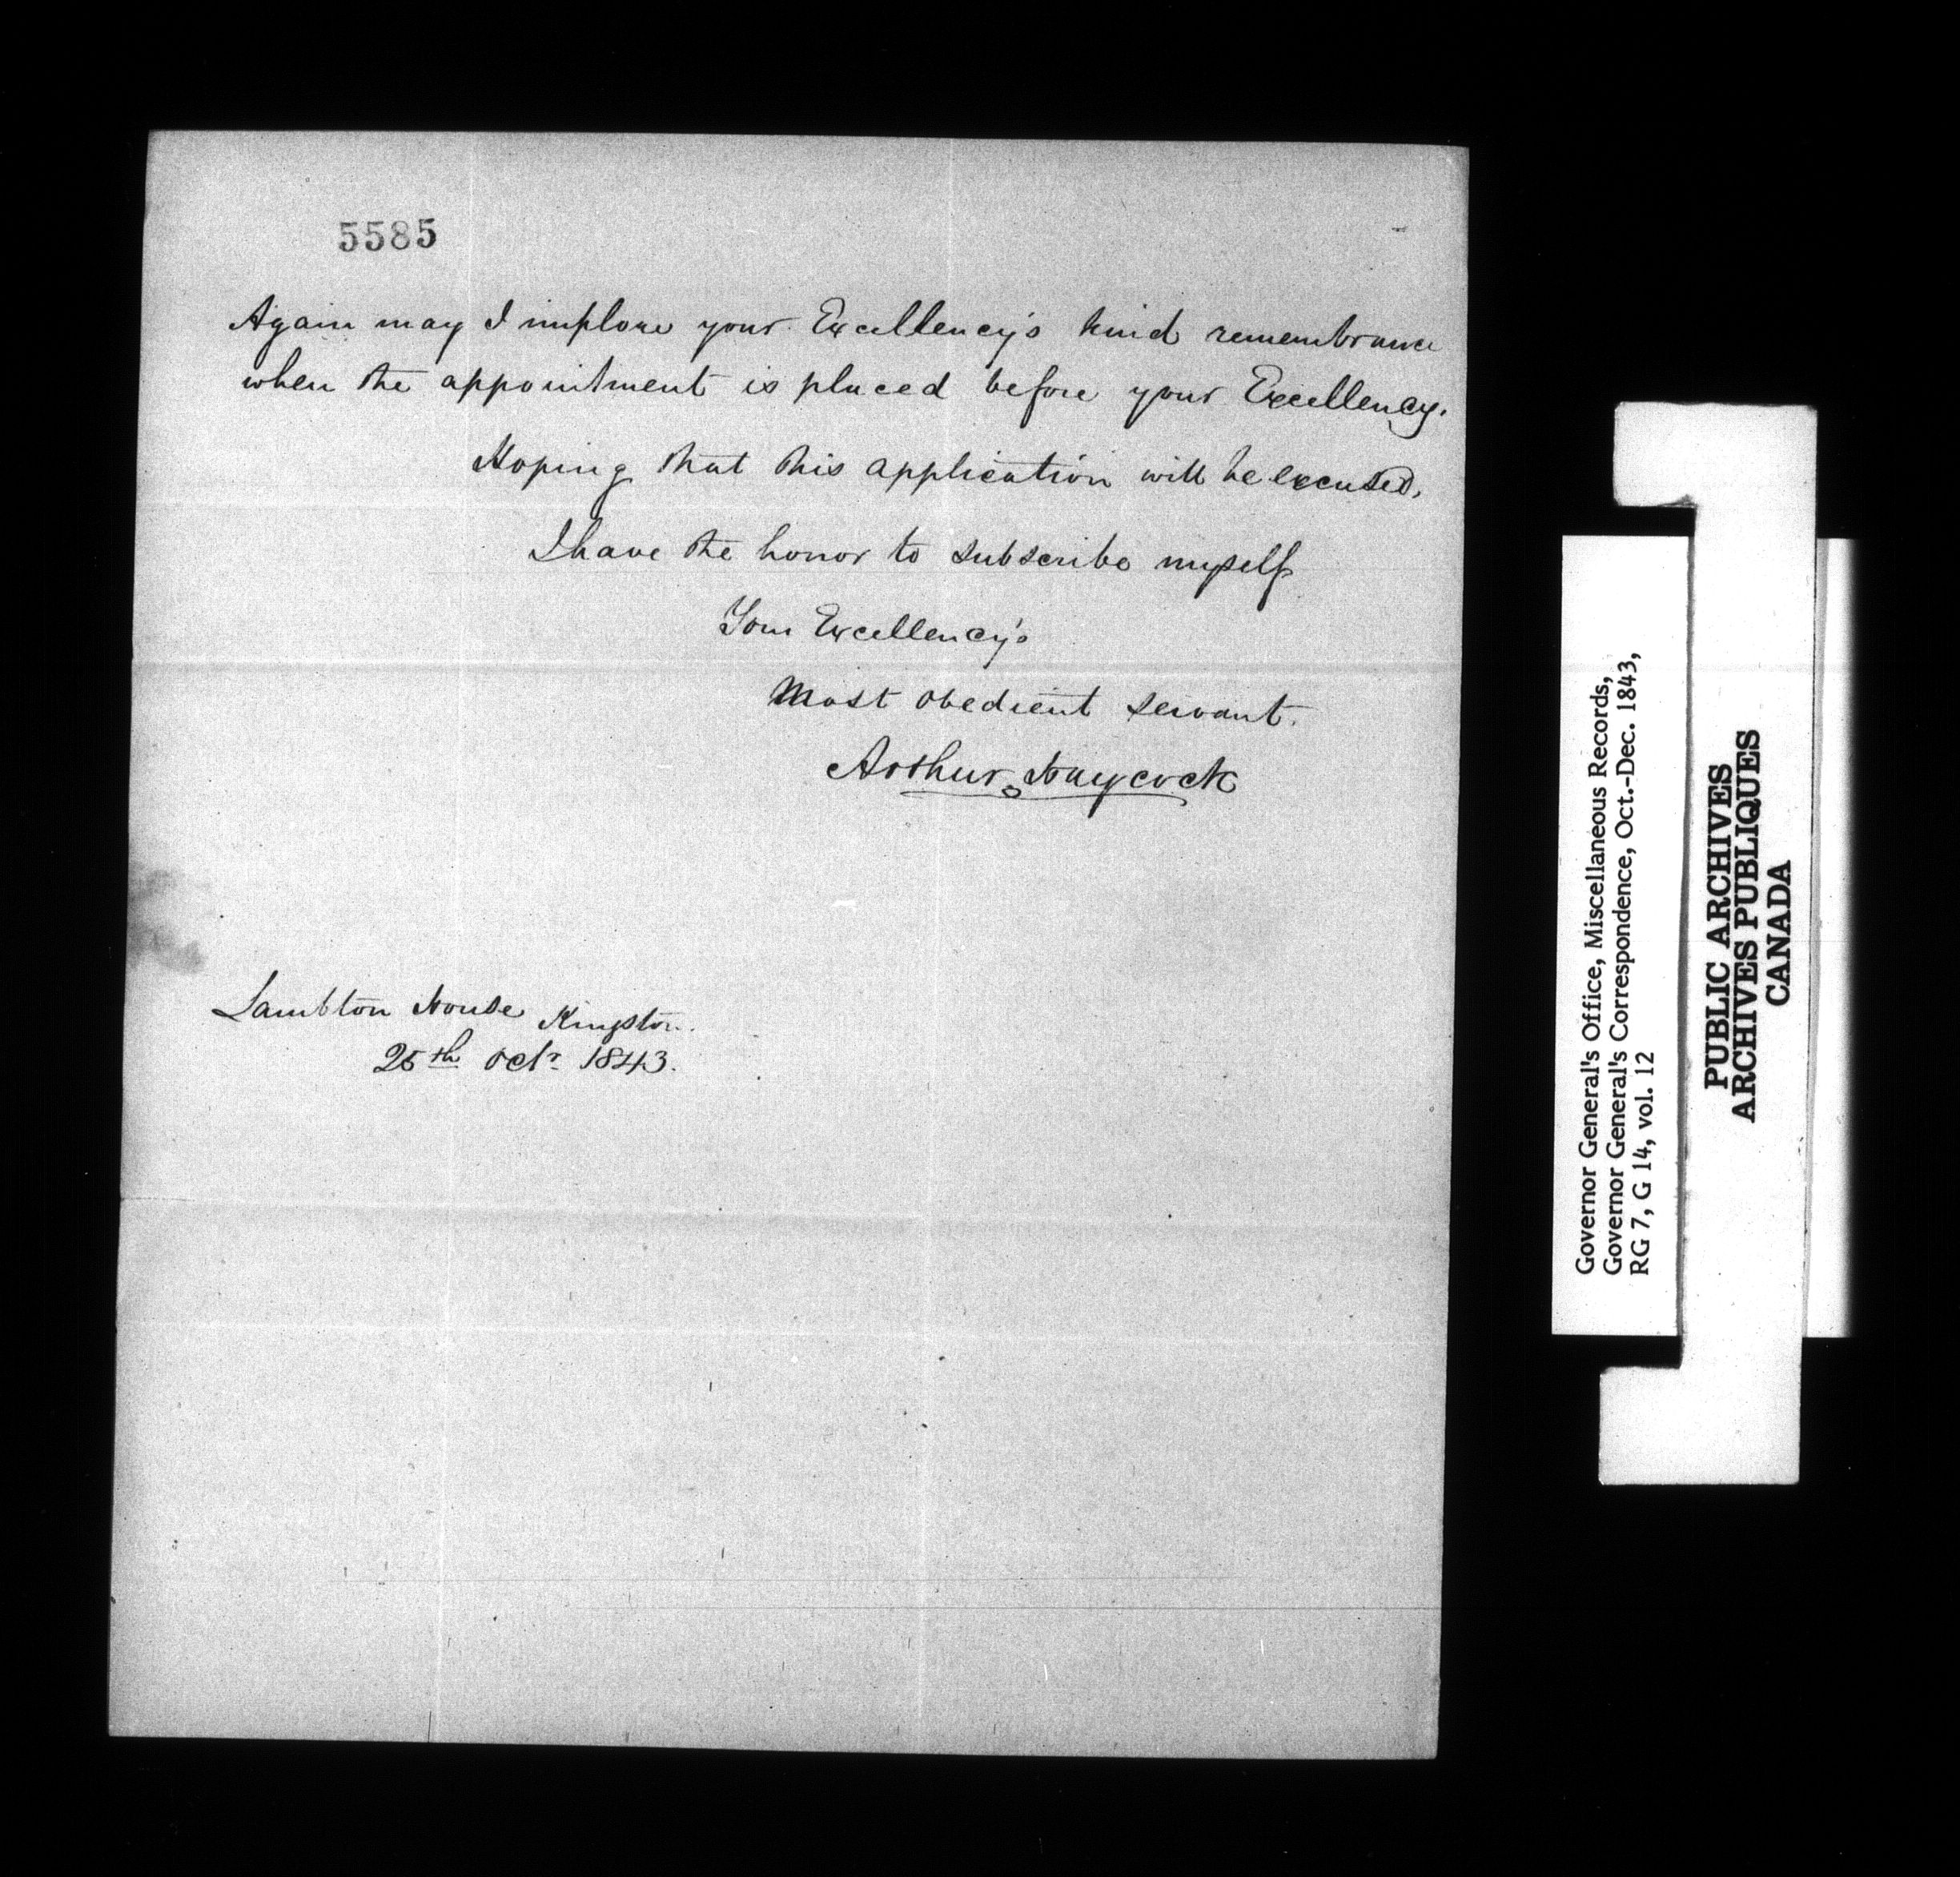 5585
Again may I implore your Excellency's kind remembrance
when the appointment is placed before your Excellency.
Hoping that this application will be excused,
I have the honor to subscribe myself
Your Excellency's
Most obedient servant.
Arthur Haycock
Lambton House Kingston.
25th Octr 1843.
Governor General's Office, Miscellaneous Records,
Governor General's Correspondence, Oct.-Dec. 1843,
RG 7, G 14, vol. 12
PUBLIC ARCHIVES
ARCHIVES PUBLIQUES
CANADA